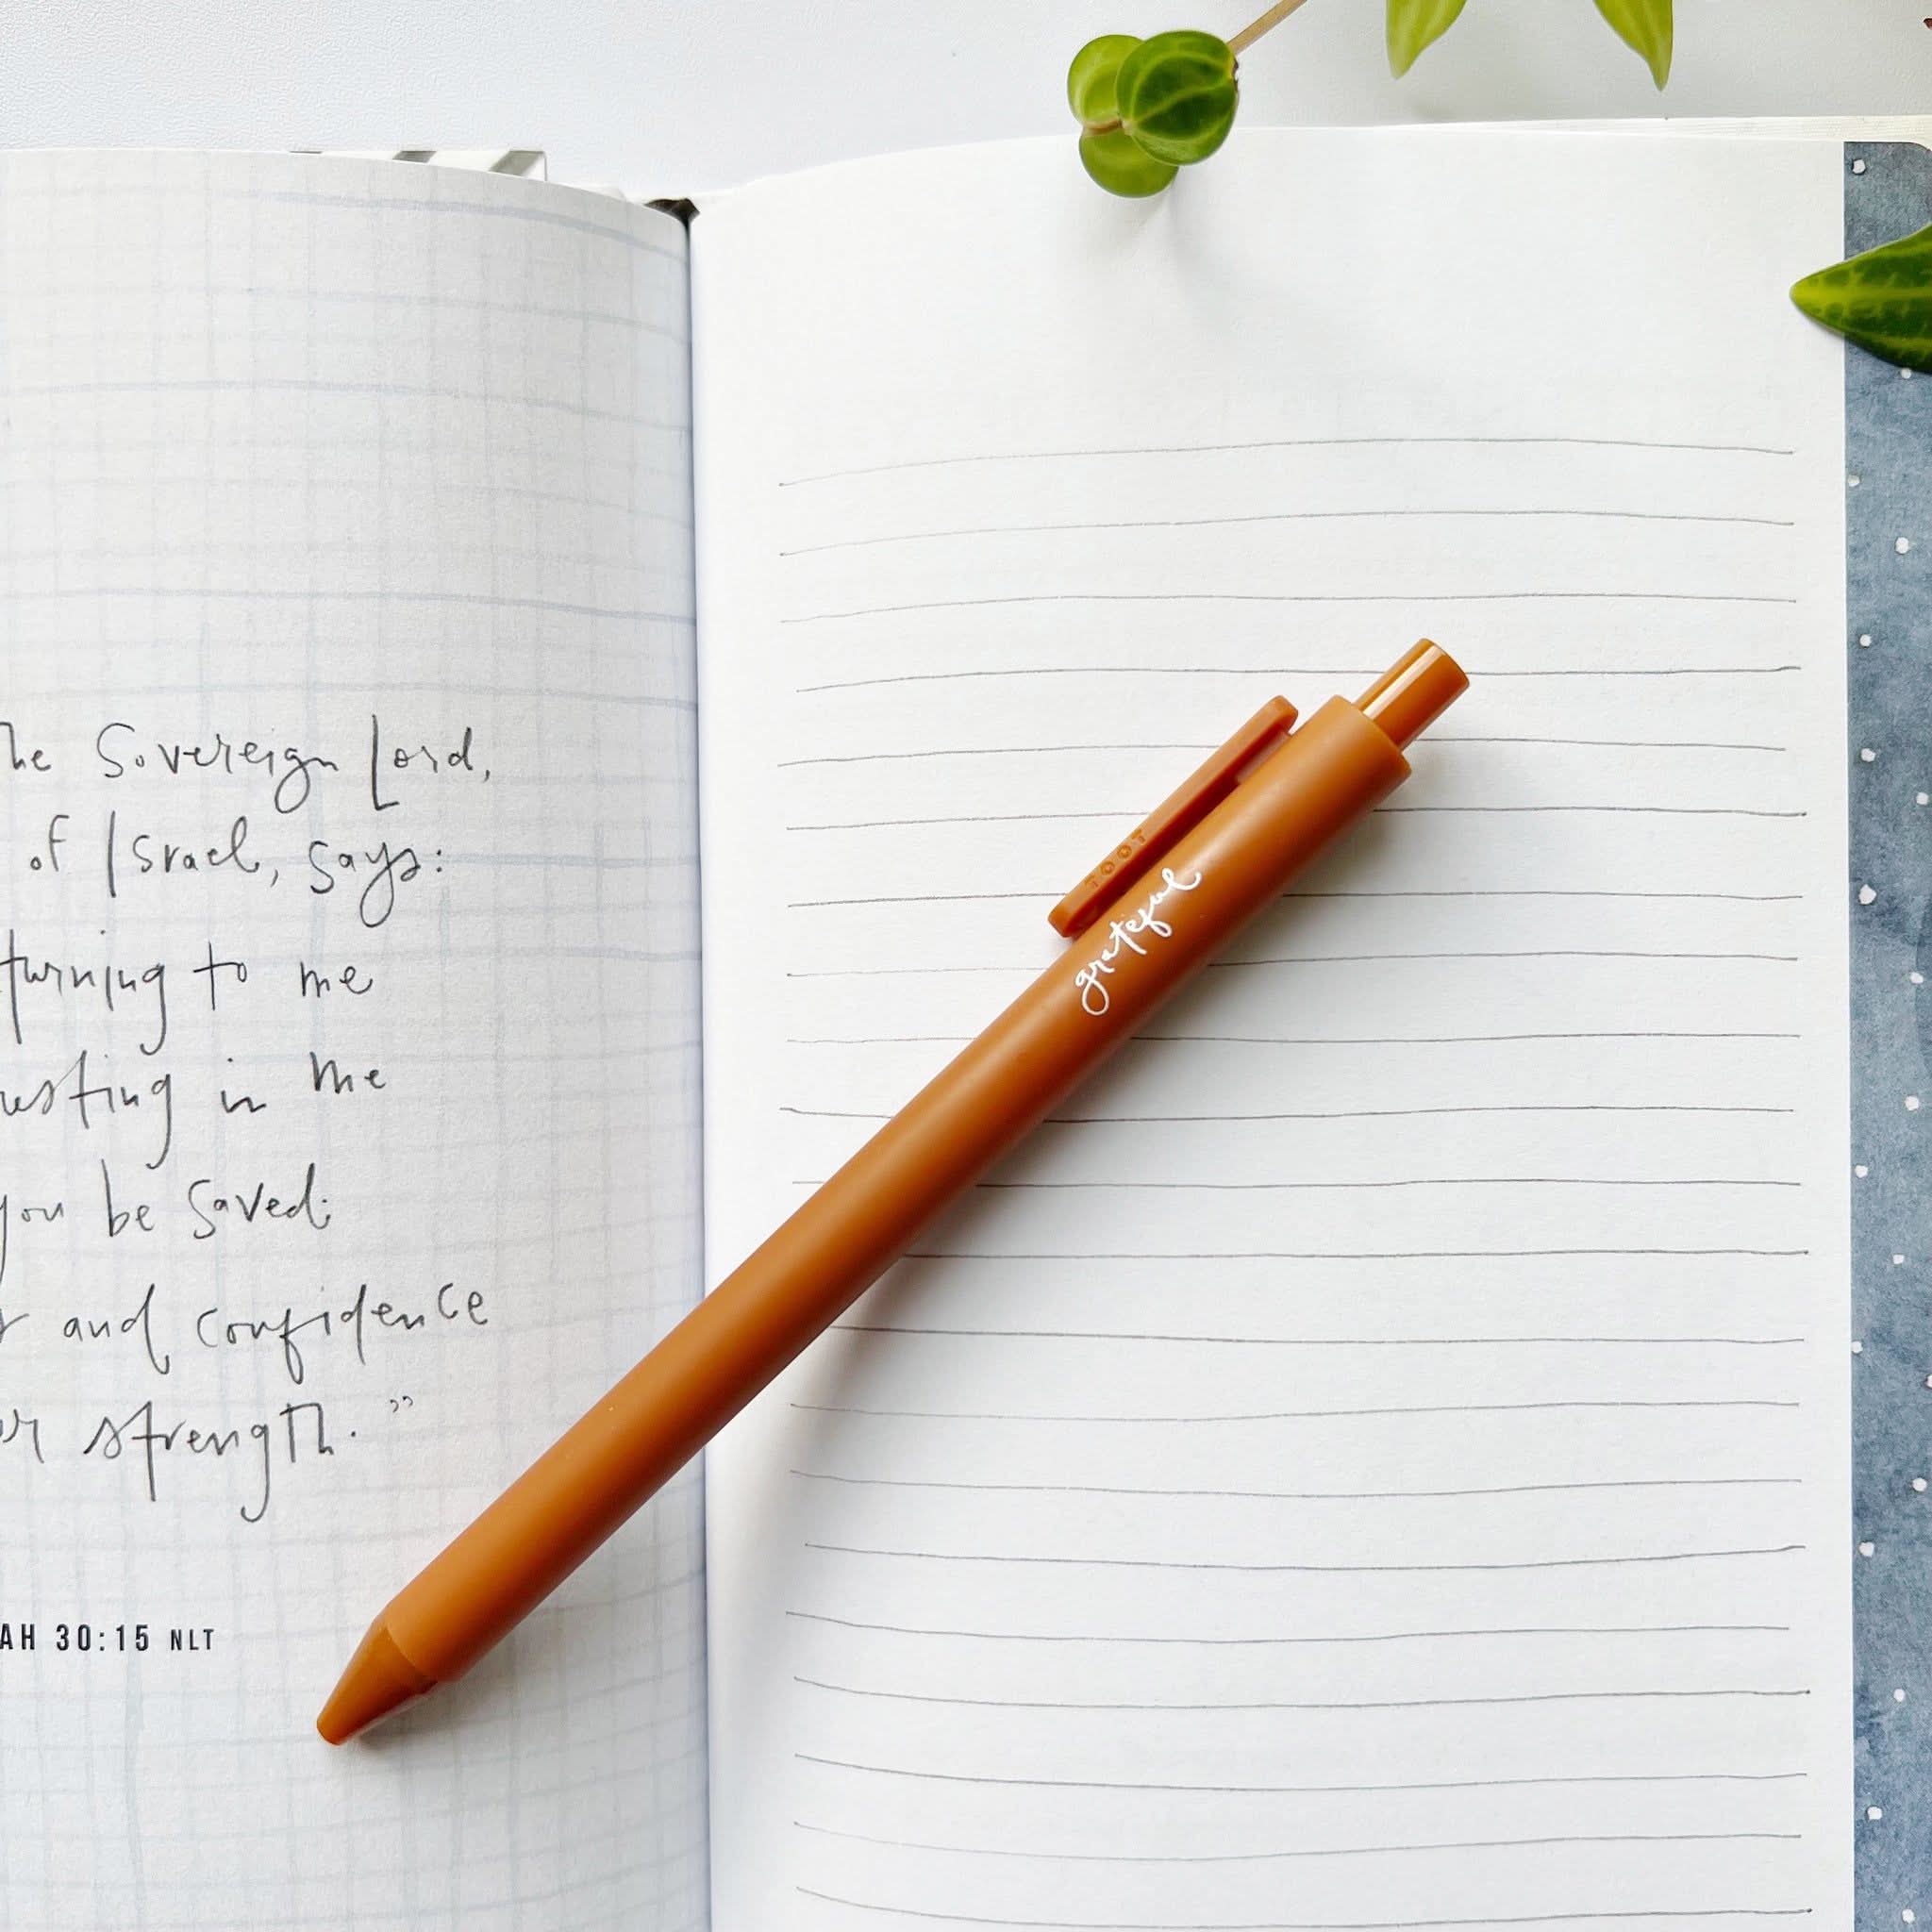 he Sovereign Lord,
of Israel, says:
turning to me
usting in me
you be saved.
and confidence
or strength.”
AH 30:15 NLT
TOOT
grateful